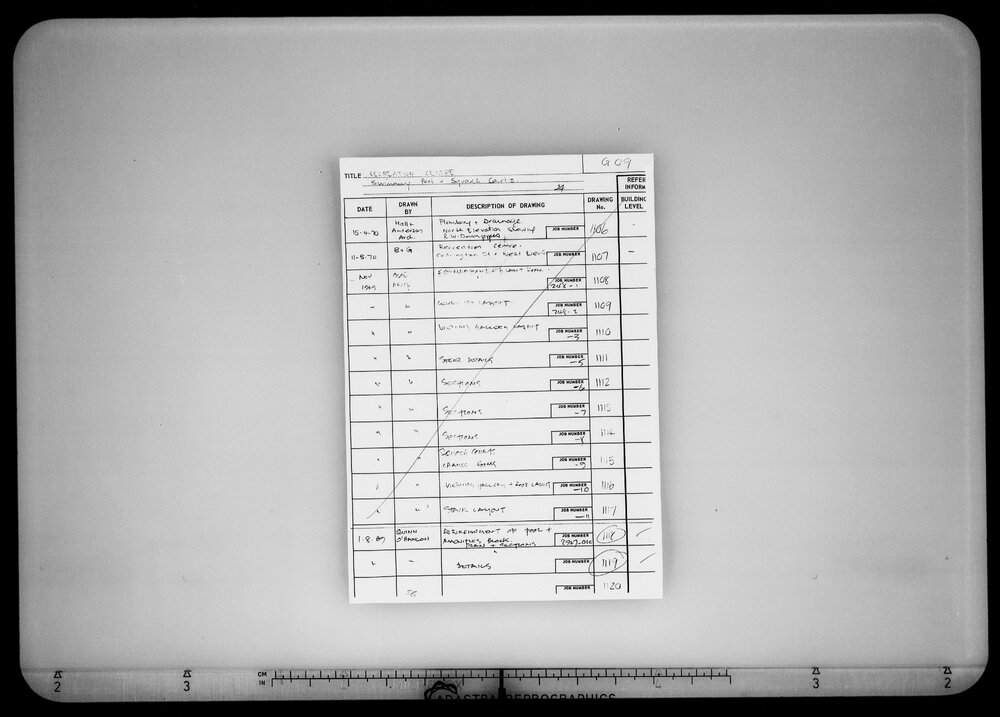 G 09
TITLE RECREATION CENTRE
Swimming Pool + Squash Courts.
REFER
INFORM
DATE
DRAWN BY
DESCRIPTION OF DRAWING
DRAWING No.
BUILDING LEVEL
15-4-70
Hall + Anderson Arch.
Plumbing + Drainage
North Elevation Showing
R.W. Downpipes
JOB NUMBER
1106
-
11-5-70
B+G
Recreation Centre.
St + West Elevs
JOB NUMBER
1107
-
Nov 1969
JOB NUMBER
248-1
1108
"
"
LAYOUT
JOB NUMBER
248-2
1109
"
"
VIEWING GALLERY LAYOUT
JOB NUMBER
-3
1110
"
"
STEEL DETAILS
JOB NUMBER
-5
1111
"
"
SECTIONS
JOB NUMBER
-6
1112
"
"
SECTIONS
JOB NUMBER
-7
1113
"
"
SECTIONS
JOB NUMBER
-8
1114
"
"
SQUASH COURTS
CHANGE ROOMS
JOB NUMBER
-9
1115
"
"
VIEWING GALLERY + ROOF LAYOUT
JOB NUMBER
-10
1116
"
"
STAIR LAYOUT
JOB NUMBER
-11
1117
1-8-89
QUINN O'HANLON
REFURBISHMENT OF POOL +
AMENITIES BLOCK
PLAN + SECTIONS
JOB NUMBER
1118
"
"
"
DETAILS
JOB NUMBER
1119
JOB NUMBER
1120
CM
IN
2
3
3
2
REPROGRAPHICS